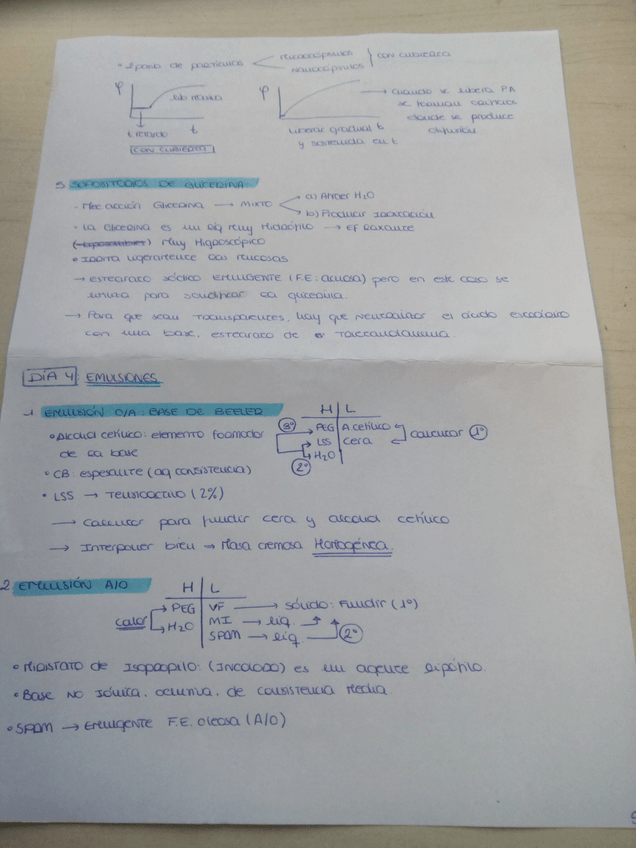 • 2 tipos de partículas microcápsulas } con cubierta
nanocápsulas
φ lib máxima
t retardo t
CON CUBIERTA
φ
liberac gradual t
y sostenida en t
→ cuando se libera PA
se forman
donde se produce
difusión
5. SUPOSITORIOS DE GLICERINA:
- Mec acción Glicerina → MIXTO
a) Atraer H2O
b) Producir Irritación
• LA Glicerina es un liq muy Hidrófilo → Ef laxante
Muy Higroscópico
• Irrita ligeramente las mucosas
→ estearato sódico: EMULGENTE (F.E: acuosa) pero en este caso se
utiliza para solidificar la glicerina.
→ Para que sean Transparentes, hay que neutralizar el ácido esteárico
con una base, estearato de trietanolamina.
DÍA 4: EMULSIONES
1. EMULSIÓN O/A: BASE DE BEELER
H | L
3º PEG | A cetílico
LSS | cera
H2O
calentar 1º
2º
• Alcohol cetílico: elemento formador
de la base
• CB: espesante (aq consistencia)
• LSS → Tensioactivo (2%)
→ Calentar para fundir cera y alcohol cetílico
→ Interponer bien → Masa cremosa Homogénea.
2. EMULSIÓN A/O
H | L
calor PEG | VF → sólido: Fundir (1º)
H2O | MI → liq
SPAN → liq 2º
• Miristato de Isopropilo: (Incoloro) es un agente lipófilo.
• Base NO iónica, oclusiva, de consistencia Media.
• SPAN → Emulgente F.E. oleosa (A/O)